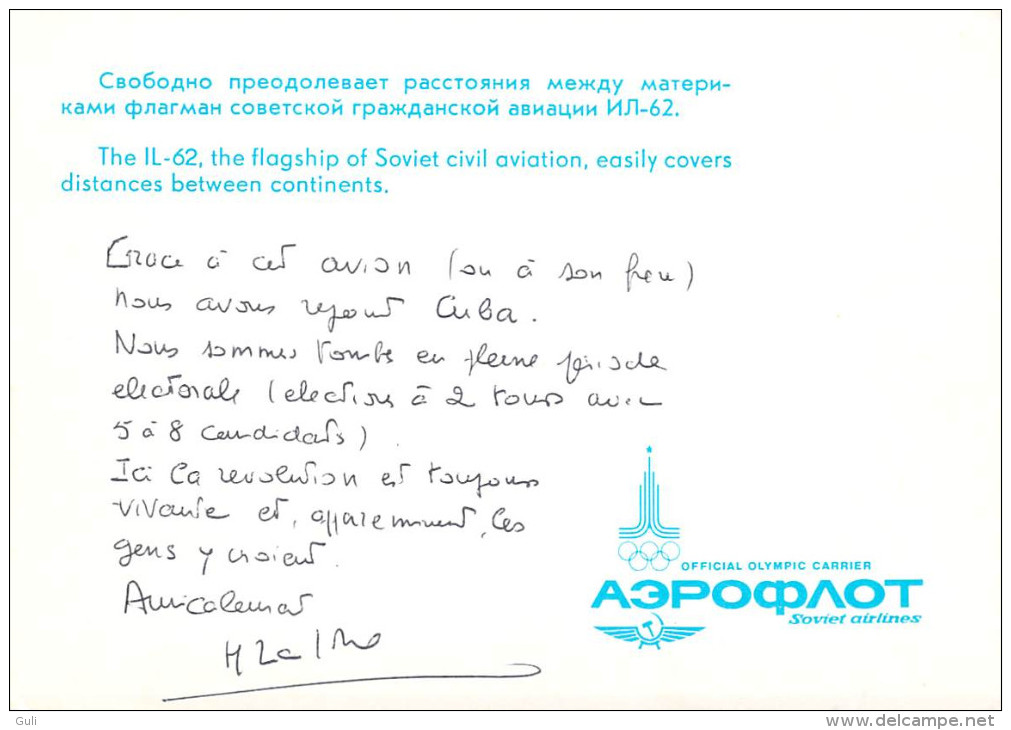 Свободно преодолевает расстояния между матери-
ками флагман советской гражданской авиации ИЛ-62.
The IL-62, the flagship of Soviet civil aviation, easily covers
distances between continents.
Grace à cet avion (ou à son frere)
Nous avons rejoint Cuba.
Nous sommes tombés en pleine periode
electorale (elections à 2 tours avec
5 à 8 candidats).
Ici la revolution est toujours
vivante et, apparemment, les
gens y croient.
Amicalement
OFFICIAL OLYMPIC CARRIER
АЭРОФЛОТ
Soviet airlines
Guli
www.delcampe.net